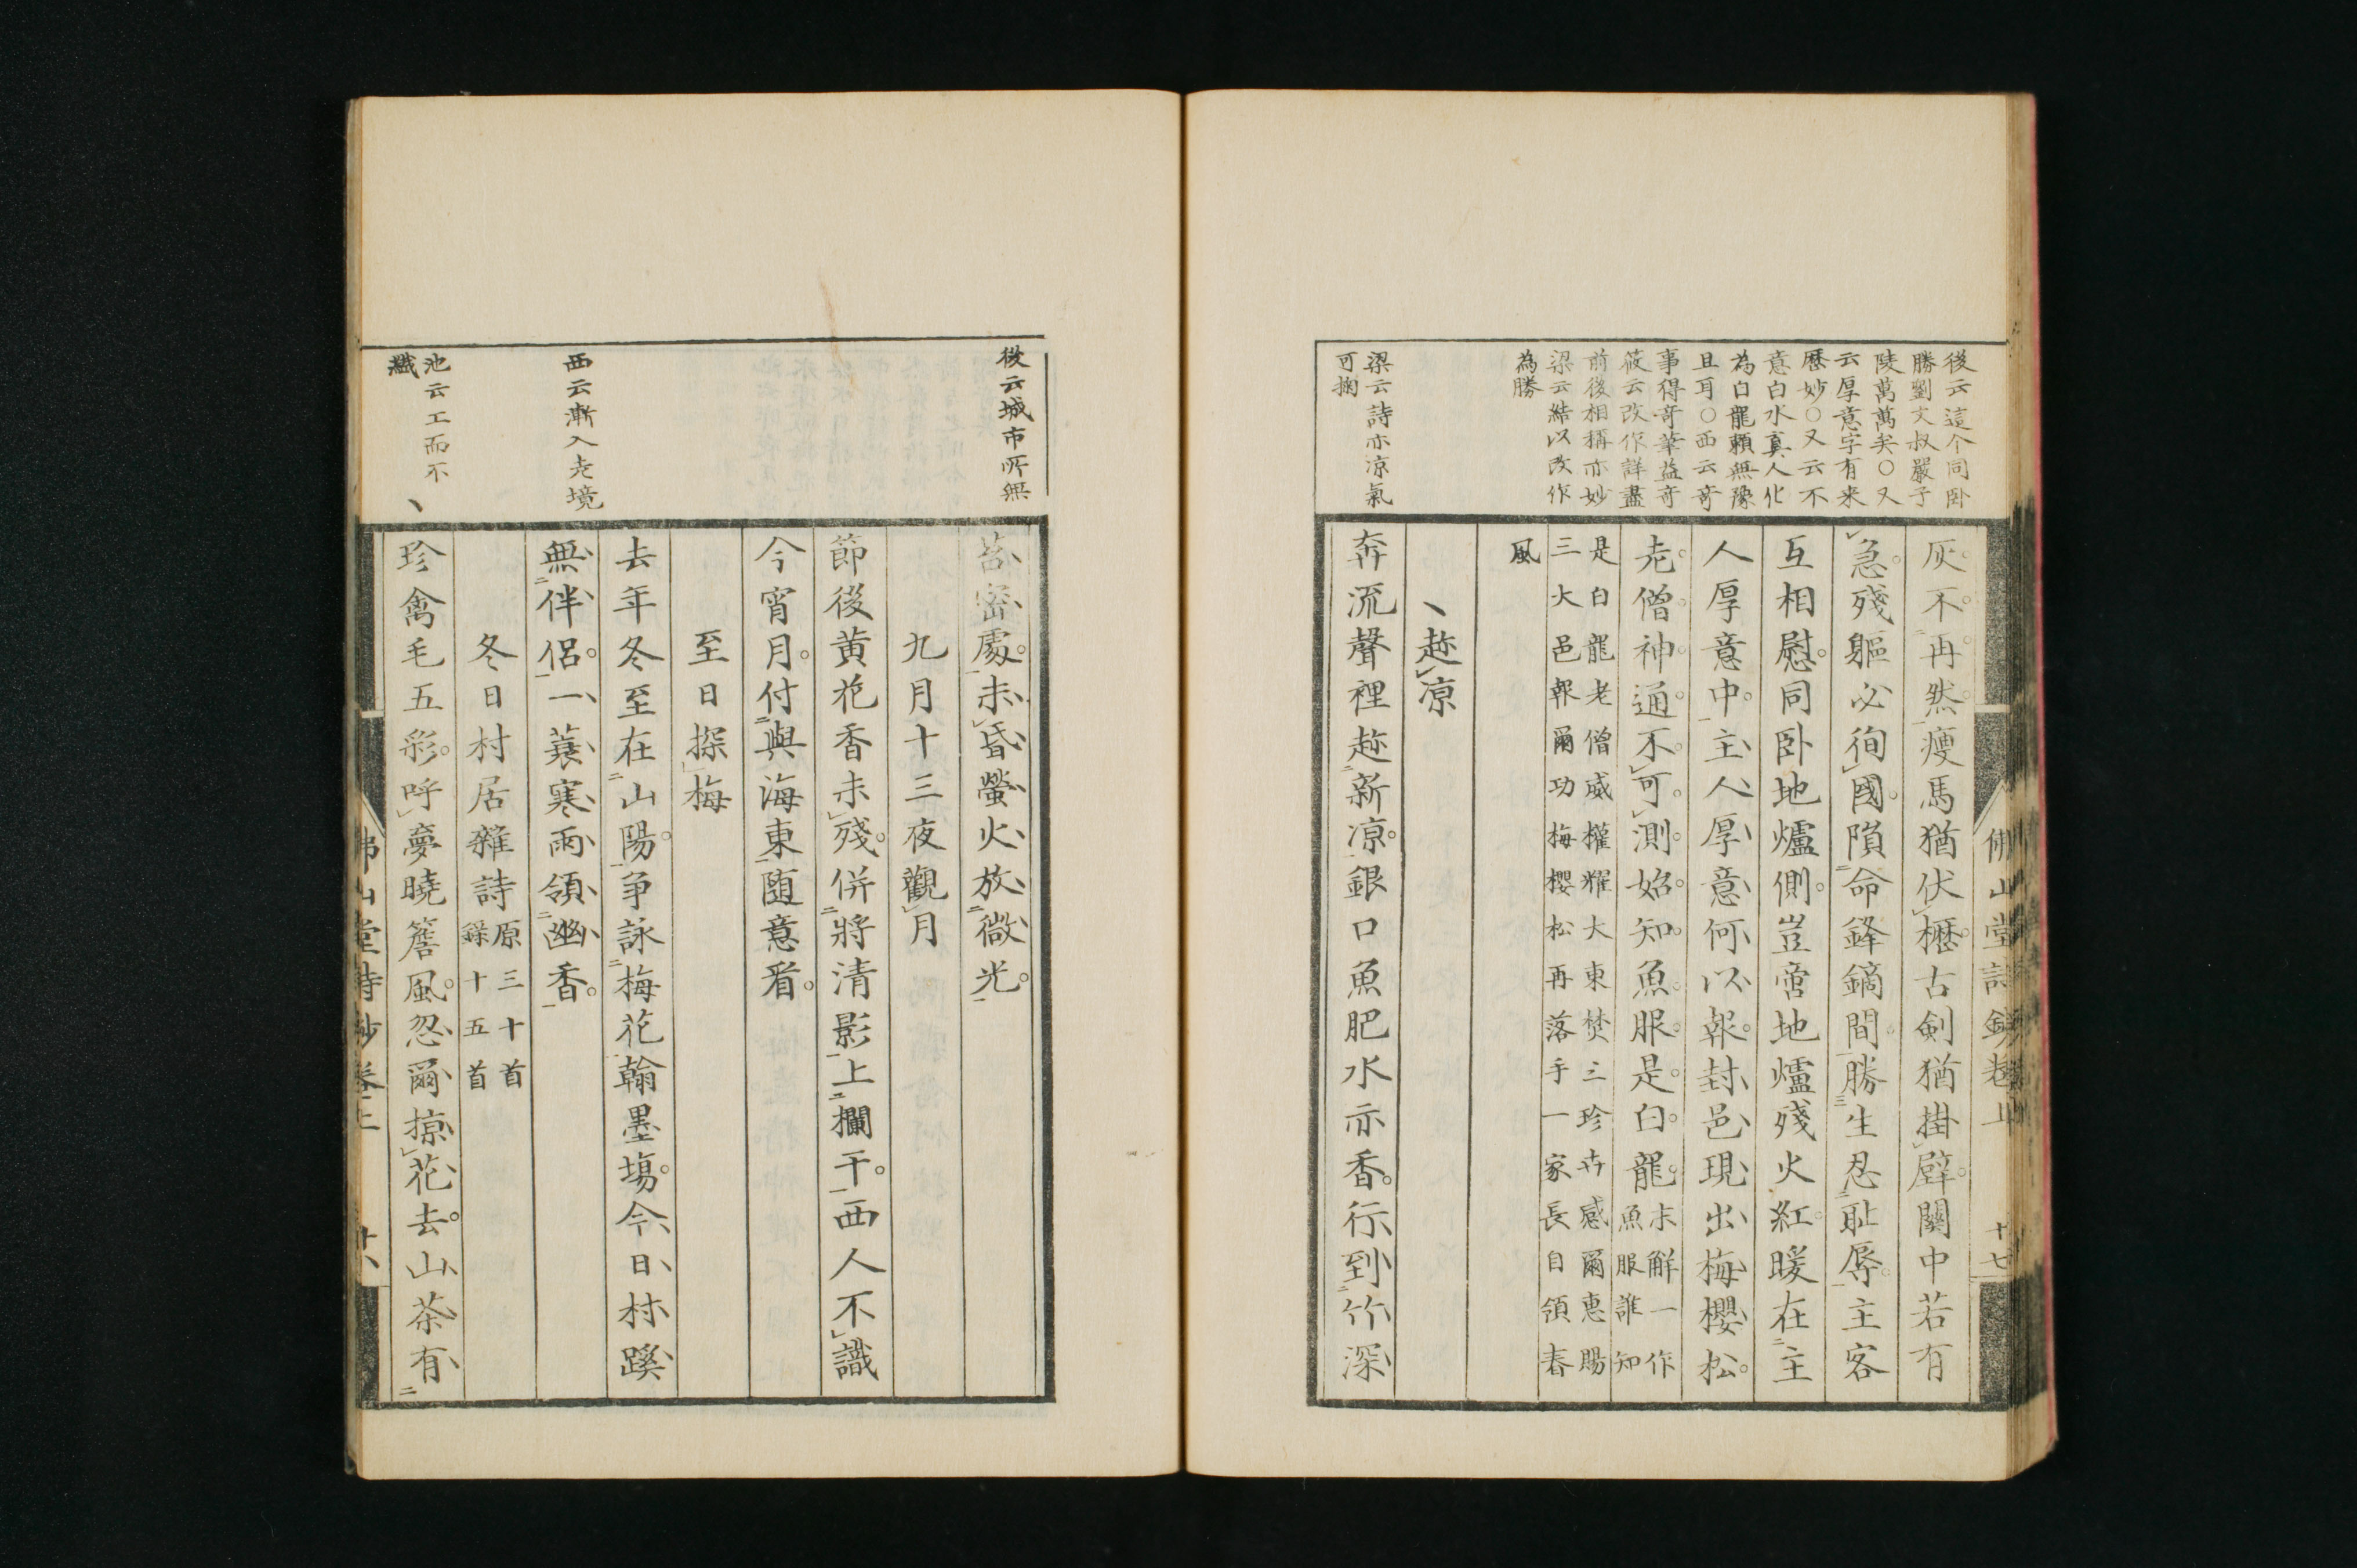 後云這个同卧
勝劉文叔嚴子
陵萬萬矣○又
云厚意字有来
歴妙○又云不
意白水真人化
為白龍頼無豫
且耳○西云奇
事得奇筆益奇
筱云改作詳盡
前後相稱亦妙
梁云結以改作
為勝
梁云詩亦凉氣
可掬
佛山堂詩鈔卷上 十七
灰不再然瘦馬猶伏櫪古剣猶掛壁關中若有
急残軀必徇國隕命鋒鏑間勝生忍耻辱主客
互相慰同卧地爐側豈啻地爐残火紅暖在主
人厚意中主人厚意何以報封邑現出梅櫻松
老僧神通不可測始知魚服是白龍末解一作
魚服誰知
是白龍老僧威權耀大東焚三珍卉感爾惠賜
三大邑報爾功梅櫻松再落手一家長自領春
風
趂凉
奔流聲裡趂新凉銀口魚肥水亦香行到竹深
後云城市所無
西云漸入老境
池云工而不
纎
苔密處未昏螢火放微光
九月十三夜觀月
節後黄花香未残併將清影上欄干西人不識
今宵月付與海東随意看
至日探梅
去年冬至在山陽争詠梅花翰墨場今日村蹊
無伴侶一蓑寒雨領幽香
冬日村居雜詩原三十首
録十五首
珍禽毛五彩呼夢曉簷風忽爾掠花去山茶有
佛山堂詩鈔卷上 十八